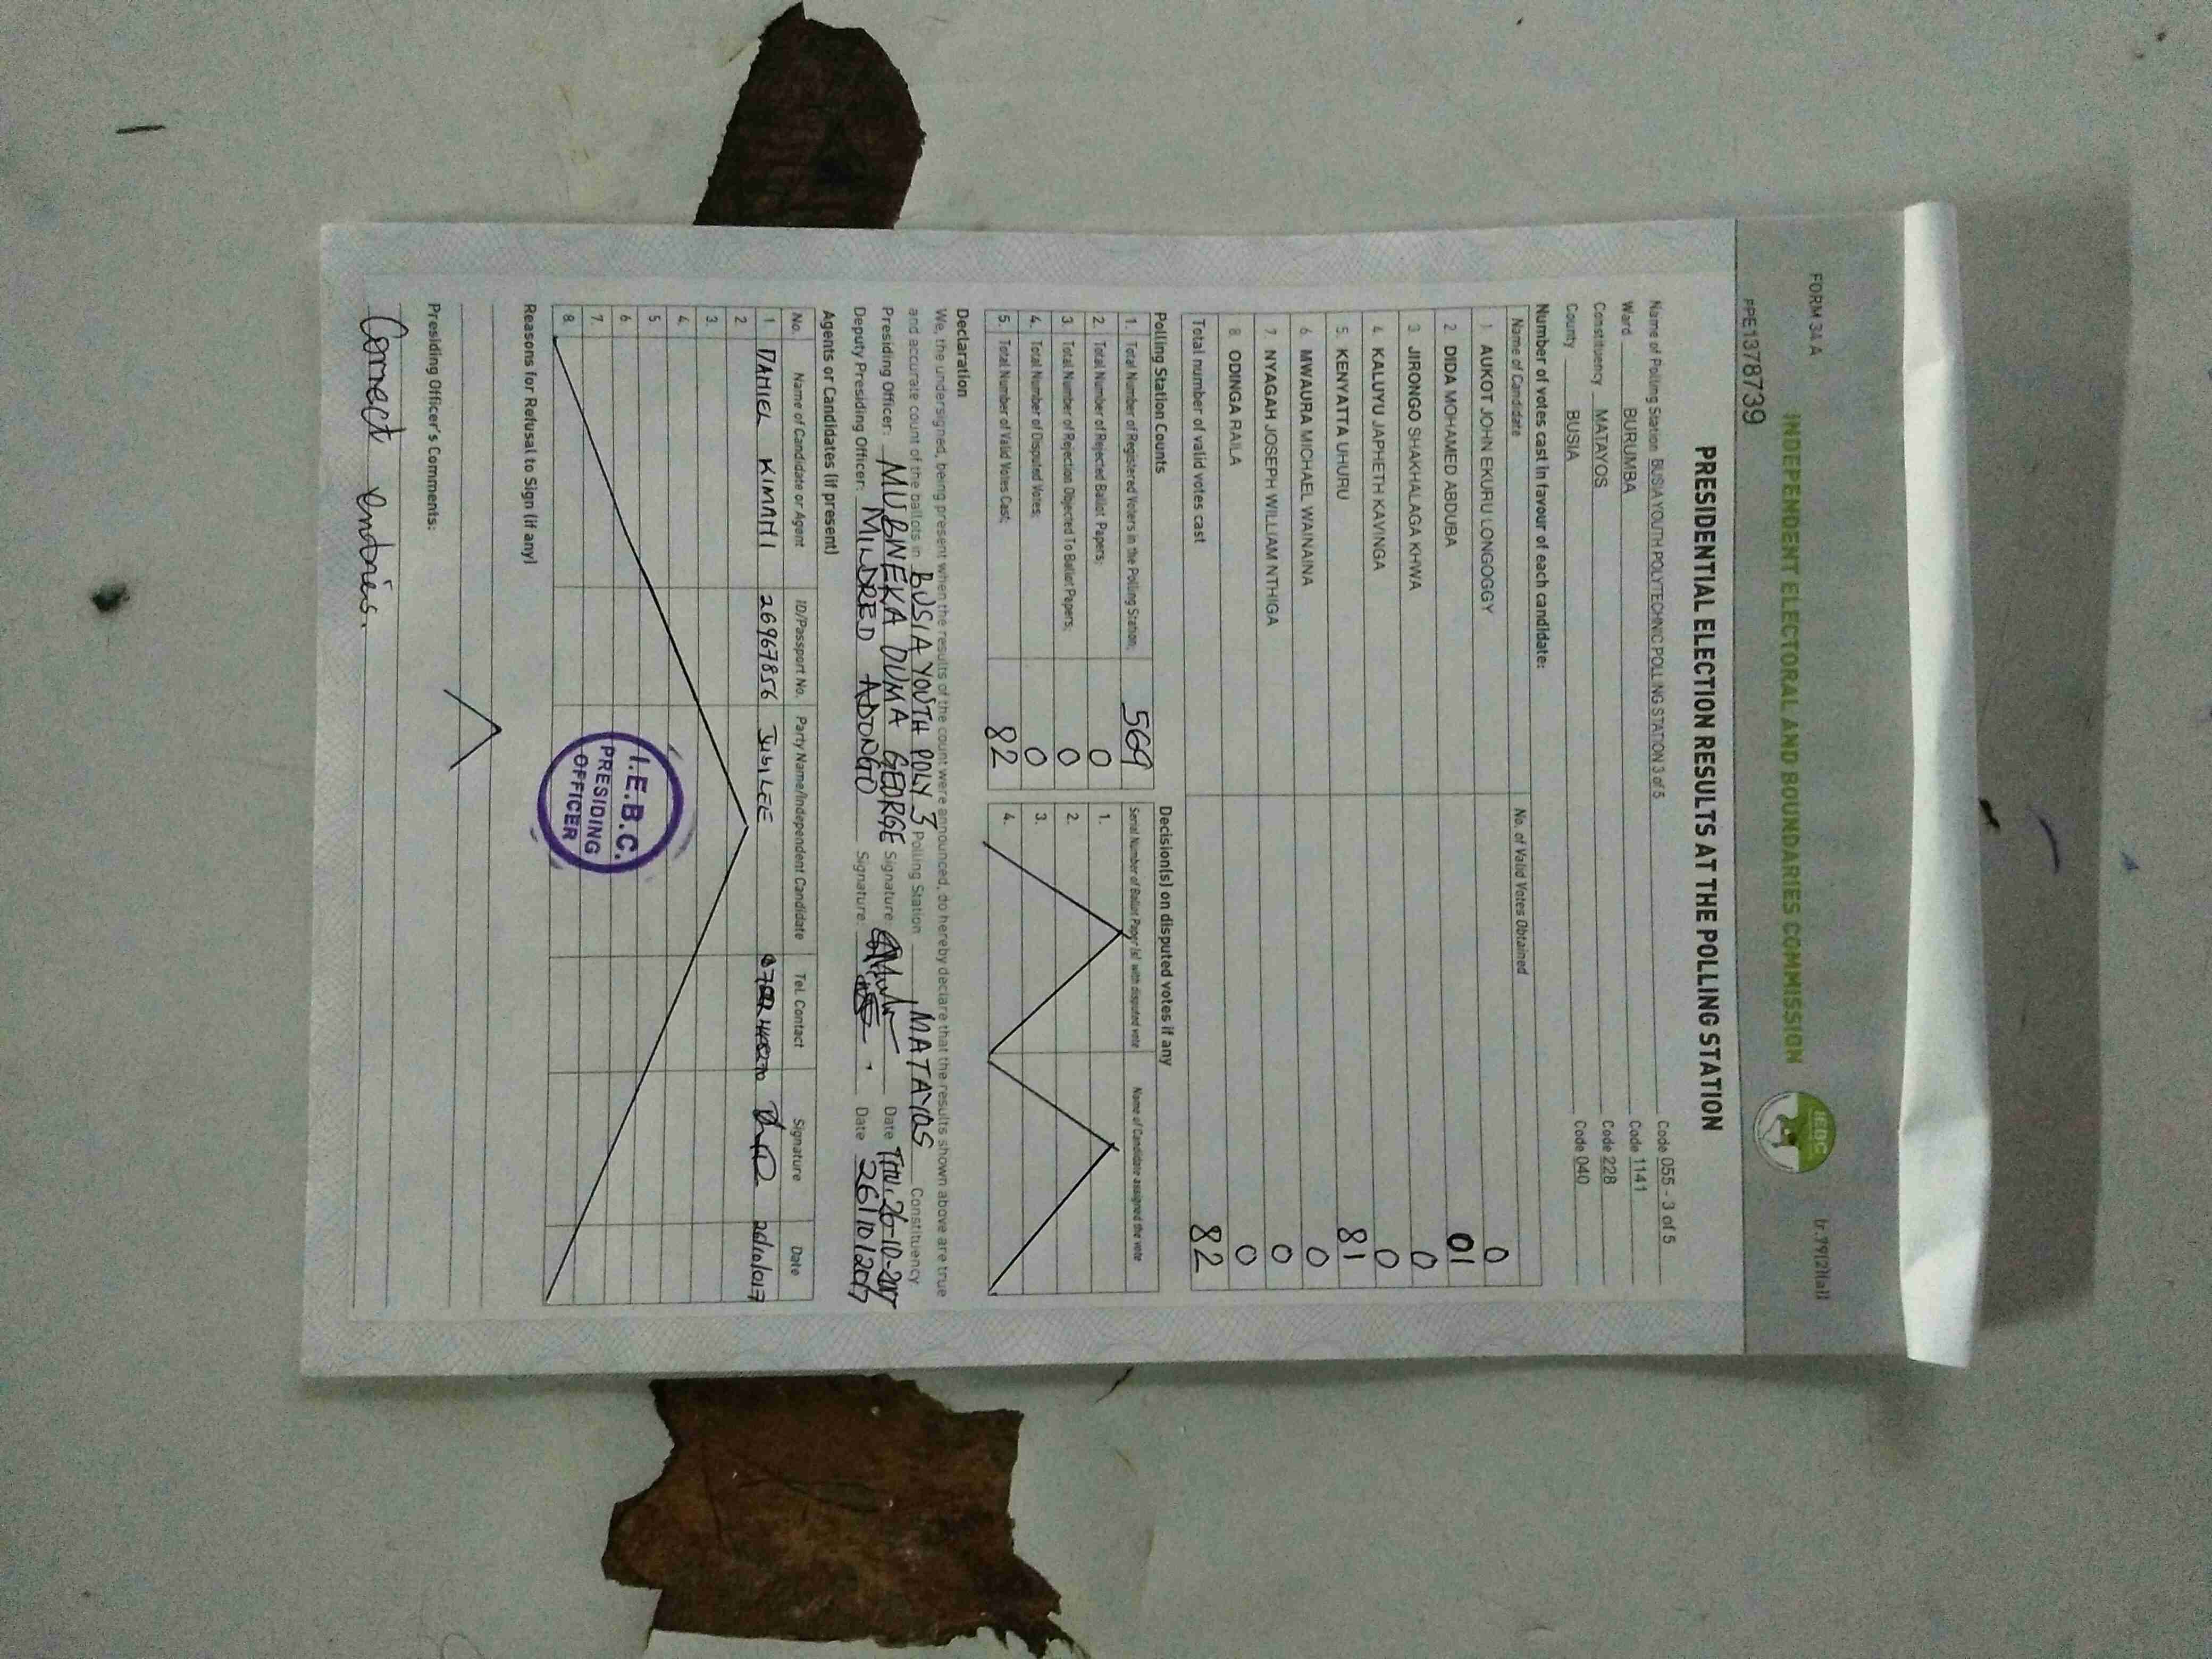 FORM 34 A
r.79(2)(a)
INDEPENDENT ELECTORAL AND BOUNDARIES COMMISSION
IEBC
PPE1378739
PRESIDENTIAL ELECTION RESULTS AT THE POLLING STATION
Name of Polling Station BUSIA YOUTH POLYTECHNIC POLLING STATION 3 of 5 Code 055 - 3 of 5
Ward BURUMBA Code 1141
Constituency MATAYOS Code 228
County BUSIA Code 040
Number of votes cast in favour of each candidate:
Name of Candidate No. of Valid Votes Obtained
1 AUKOT JOHN EKURU LONGOGGY 0
2 DIDA MOHAMED ABDUBA 01
3 JIRONGO SHAKHALAGA KHWA 0
4. KALUYU JAPHETH KAVINGA 0
5. KENYATTA UHURU 81
6 MWAURA MICHAEL WAINAINA 0
7 NYAGAH JOSEPH WILLIAM NTHIGA 0
8 ODINGA RAILA 0
Total number of valid votes cast 82
Polling Station Counts
1. Total Number of Registered Voters in the Polling Station; 569
2. Total Number of Rejected Ballot Papers; 0
3 Total Number of Rejection Objected To Ballot Papers; 0
4. Total Number of Disputed Votes; 0
5. Total Number of Valid Votes Cast; 82
Decision(s) on disputed votes if any
Serial Number of Ballot Paper (s) with disputed vote Name of Candidate assigned the vote
1.
2.
3.
4.
Declaration
We, the undersigned, being present when the results of the count were announced, do hereby declare that the results shown above are true
and accurate count of the ballots in BUSIA YOUTH POLY 3 Polling Station MATAYOS Constituency
Presiding Officer: MUBNEKA OUMA GEORGE Signature Date THU. 26-10-2017
Deputy Presiding Officer: MILDRED ADONGO Signature Date 26/10/2017
Agents or Candidates (if present)
No. Name of Candidate or Agent ID/Passport No. Party Name/Independent Candidate Tel. Contact Signature Date
1 DANIEL KIMANI 26967856 JUBILEE
2
3.
4.
5
6
7.
8.
I.E.B.C.
PRESIDING
OFFICER
Reasons for Refusal to Sign (if any)
Presiding Officer's Comments:
Correct entries.